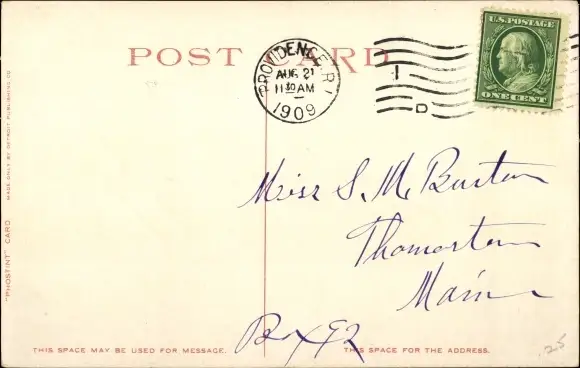 POST CARD
PROVIDENCE, R.I.
AUG 21
11 30 AM
1909
1
D
U.S. POSTAGE
ONE CENT
Miss S. M. Burton
Thomaston
Maine
Box 92
"PHOSTINT" CARD
MADE ONLY BY DETROIT PUBLISHING CO.
THIS SPACE MAY BE USED FOR MESSAGE.
THIS SPACE FOR THE ADDRESS.
.25